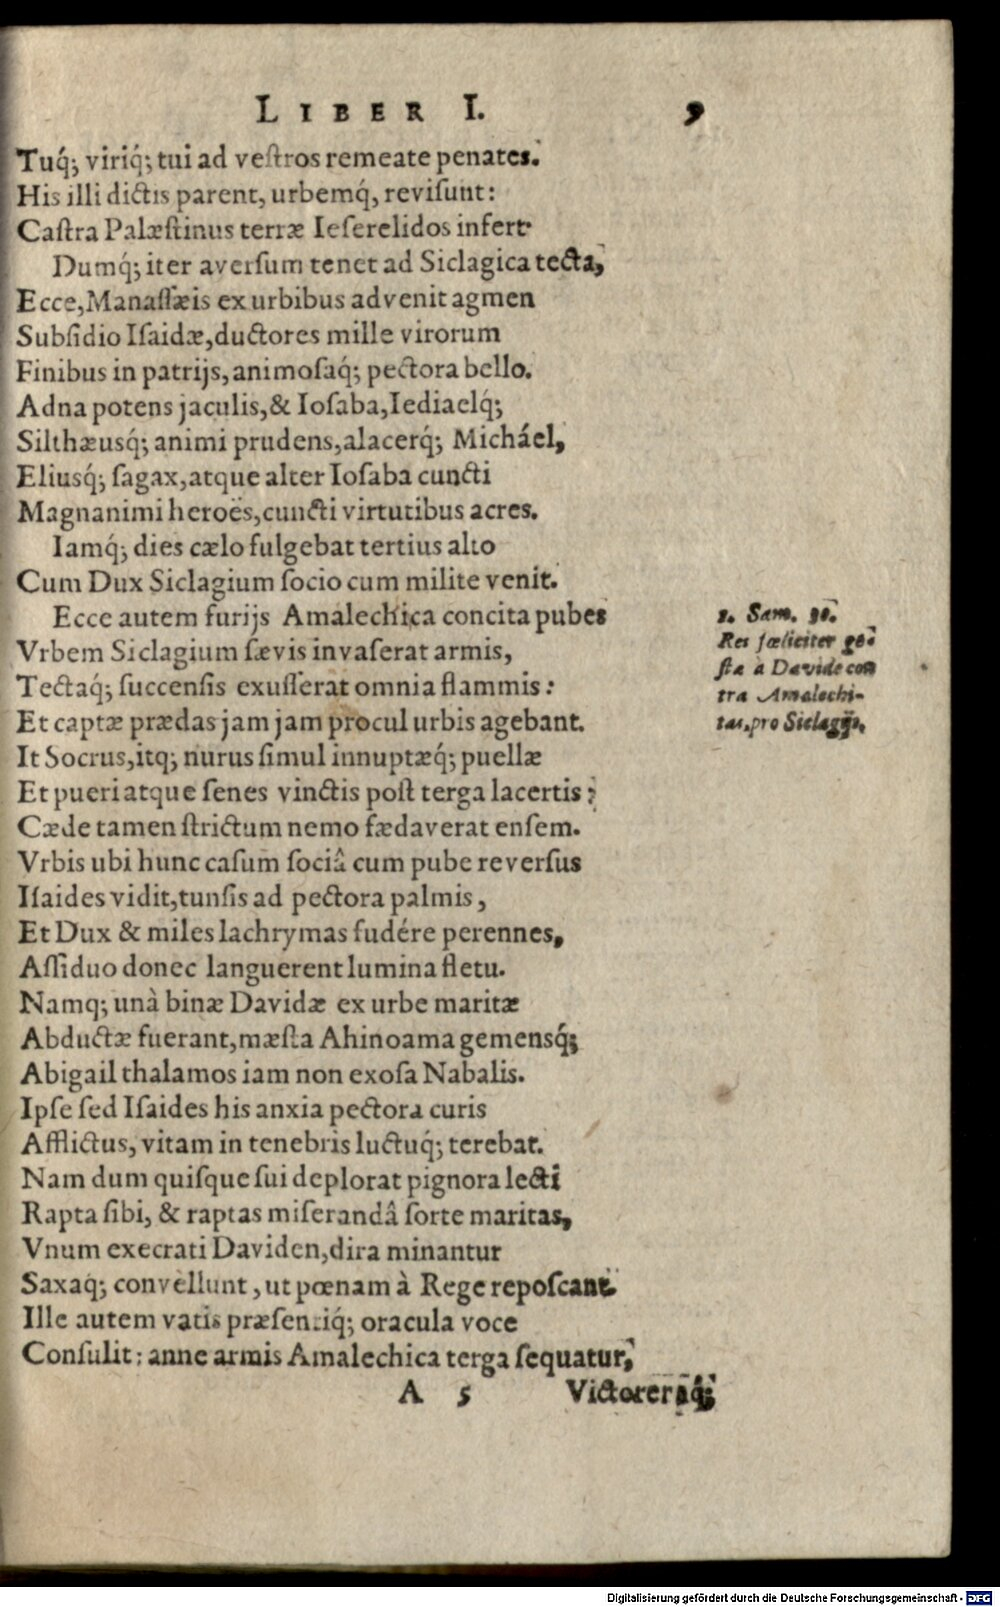 LIBER I. 9
Tuq́; viriq́; tui ad veſtros remeate penates.
His illi dictis parent, urbemq́, reviſunt:
Caſtra Palæſtinus terræ Ieſerelidos infert
Dumq́; iter averſum tenet ad Siclagica tecta,
Ecce, Manaſſæis ex urbibus advenit agmen
Subſidio Iſaidæ, ductores mille virorum
Finibus in patrijs, animoſaq́; pectora bello.
Adna potens jaculis, & Ioſaba, Iediaelq́;
Silthæusq́; animi prudens, alacerq́; Micháel,
Eliusq́; ſagax, atque alter Ioſaba cuncti
Magnanimi heroës, cuncti virtutibus acres.
Iamq́; dies cælo fulgebat tertius alto
Cum Dux Siclagium ſocio cum milite venit.
Ecce autem furijs Amalechica concita pubes
Vrbem Siclagium ſævis invaſerat armis,
Tectaq́; ſuccenſis exuſſerat omnia flammis:
Et captæ prædas jam jam procul urbis agebant.
It Socrus, itq; nurus ſimul innuptæq́; puellæ
Et pueri atque ſenes vinctis poſt terga lacertis:
Cæde tamen ſtrictum nemo fædaverat enſem.
Vrbis ubi hunc caſum ſociâ cum pube reverſus
Iſaides vidit, tunſis ad pectora palmis,
Et Dux & miles lachrymas fudére perennes,
Aſſiduo donec languerent lumina fletu.
Namq; unà binæ Davidæ ex urbe maritæ
Abductæ fuerant, mæſta Ahinoama gemensq́;
Abigail thalamos iam non exoſa Nabalis.
Ipſe ſed Iſaides his anxia pectora curis
Afflictus, vitam in tenebris luctuq́; terebat.
Nam dum quiſque ſui deplorat pignora lecti
Rapta ſibi, & raptas miſerandâ ſorte maritas,
Vnum execrati Daviden, dira minantur
Saxaq́; convellunt, ut pœnam à Rege repoſcant.
Ille autem vatis præſentiq́; oracula voce
Conſulit: anne armis Amalechica terga ſequatur,
A 5 Victorer aq́;
1. Sam. 30.
Res fæliciter ge-
ſta à Davide con
tra Amalechi-
tas, pro Siclagijs,
Digitalisierung gefördert durch die Deutsche Forschungsgemeinschaft - DFG